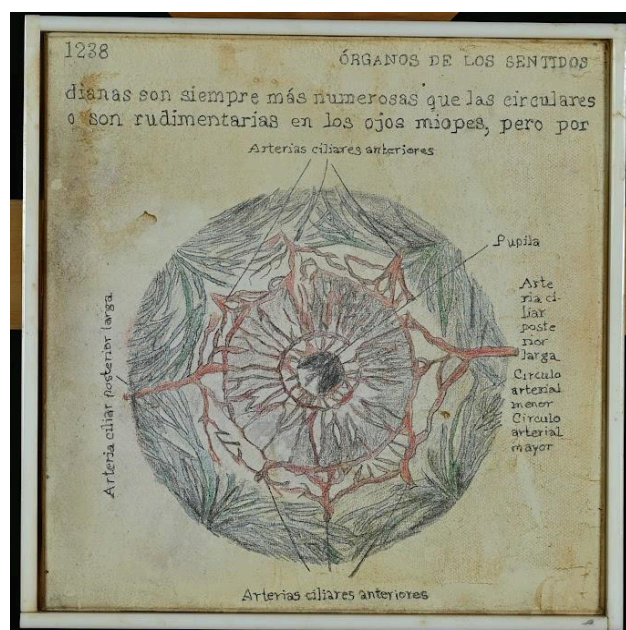 1238
ÓRGANOS DE LOS SENTIDOS
dianas son siempre más numerosas que las circulares
o son rudimentarias en los ojos miopes, pero por
Arterias ciliares anteriores
Pupila
Arteria ciliar posterior larga
Arte
ria ci-
liar
poste
rior
larga
Circulo
arterial
menor
Circulo
arterial
mayor
Arterias ciliares anteriores